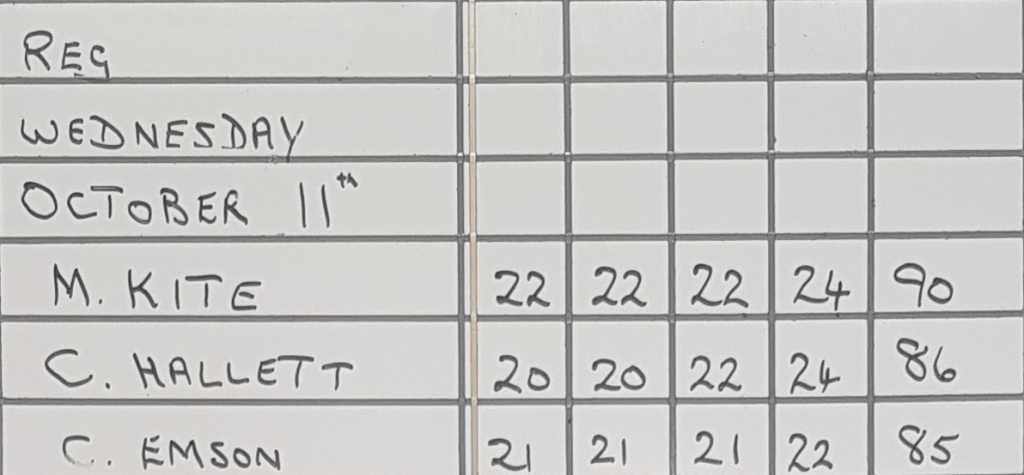 REG
WEDNESDAY
OCTOBER 11th
M. KITE 22 22 22 24 90
C. HALLETT 20 20 22 24 86
C. EMSON 21 21 21 22 85